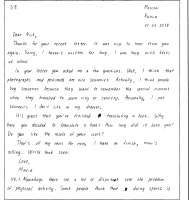 Moscow
Russia
Dear Rick,
Thanks for your recent letter. It was nice to hear from you
again. Sorry, I haven't written for long. I was busy with tests
at school.
In your letter you asked me a few questions. Well, I think that
photographs and postcards are nice souvenirs. Actually, I think people
buy souvenirs because they want to remember the special moment
when they travelled to some city or country. Personally, I put
souvenirs I don't use in my drawer.
It's great that you've finished translating a book. Why
have you decided to translate a book? How long did it take you?
Do you like the result of your work?
That's all my news for now, I have to finish, mum's
calling. Write back soon.
Love,
Maria
Nowadays there are a lot of disputes over the problem
of physical activity. Some people think that doing sports is